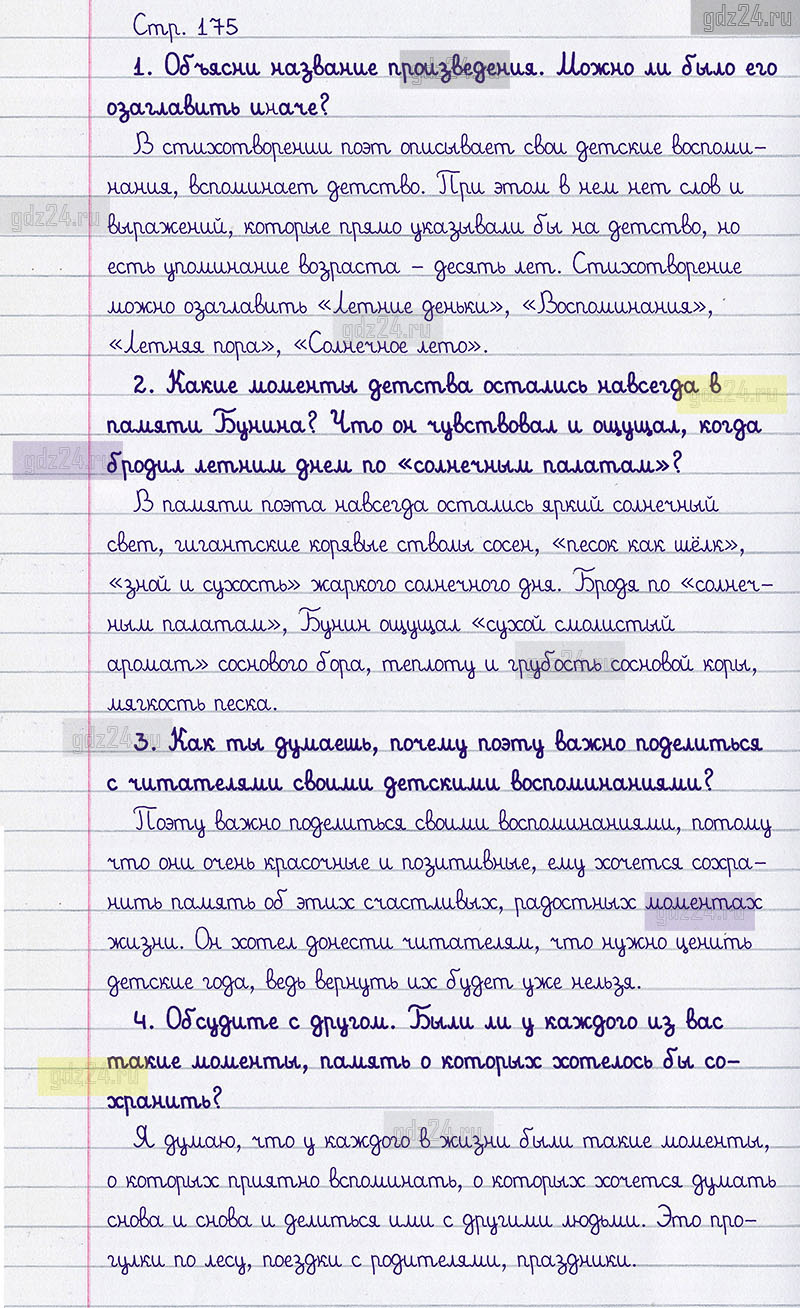 gdz24.ru
Стр. 175
1. Объясни название произведения. Можно ли было его
озаглавить иначе?
В стихотворении поэт описывает свои детские воспоми-
нания, вспоминает детство. При этом в нем нет слов и
выражений, которые прямо указывали бы на детство, но
есть упоминание возраста – десять лет. Стихотворение
можно озаглавить «Летние деньки», «Воспоминания»,
«Летняя пора», «Солнечное лето».
2. Какие моменты детства остались навсегда в
памяти Бунина? Что он чувствовал и ощущал, когда
бродил летним днем по «солнечным палатам»?
В памяти поэта навсегда остались яркий солнечный
свет, гигантские корявые стволы сосен, «песок как шёлк»,
«зной и сухость» жаркого солнечного дня. Бродя по «солнеч-
ным палатам», Бунин ощущал «сухой смолистый
аромат» соснового бора, теплоту и грубость сосновой коры,
мягкость песка.
3. Как ты думаешь, почему поэту важно поделиться
с читателями своими детскими воспоминаниями?
Поэту важно поделиться своими воспоминаниями, потому
что они очень красочные и позитивные, ему хочется сохра-
нить память об этих счастливых, радостных моментах
жизни. Он хотел донести читателям, что нужно ценить
детские года, ведь вернуть их будет уже нельзя.
4. Обсудите с другом. Были ли у каждого из вас
такие моменты, память о которых хотелось бы со-
хранить?
Я думаю, что у каждого в жизни были такие моменты,
о которых приятно вспоминать, о которых хочется думать
снова и снова и делиться ими с другими людьми. Это про-
гулки по лесу, поездки с родителями, праздники.